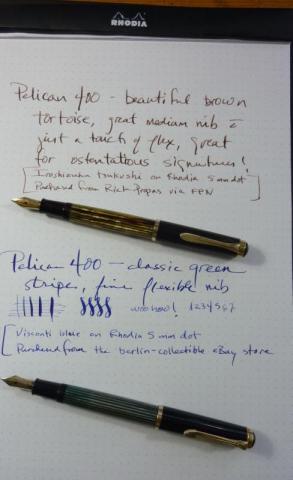 RHODIA
Pelican 400 - beautiful brown
tortoise, great medium nib c̄
just a touch of flex, great
for ostentatious signatures!
Iroshizuku tsukushi on Rhodia 5mm dot
Purchased from Rick Propas via FPN
Pelican 400 - classic green
stripe, fine flexible nib
woo hoo! 1234567
Visconti blue on Rhodia 5mm dot
Purchased from the berlin-collectible eBay store